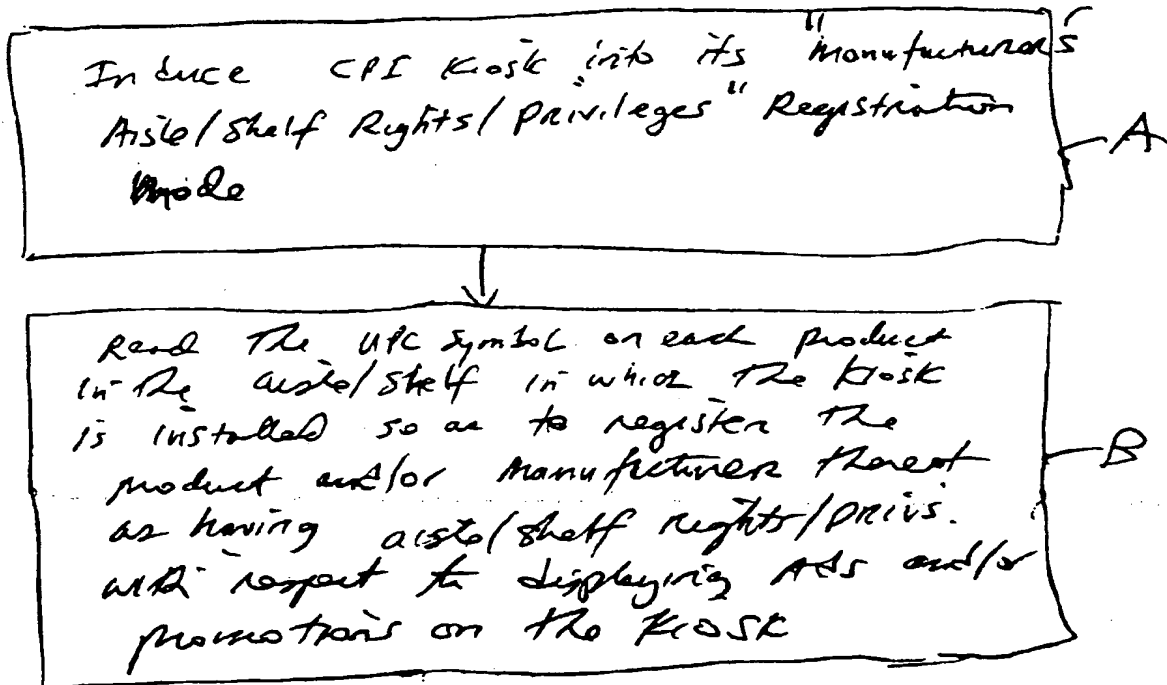 Induce CPI Kiosk into its "Manufacturer's
Aisle/Shelf Rights/Privileges" Registration
Mode
A
Read The UPC Symbol on each product
in The aisle/shelf in which The Kiosk
is installed so as to register The
product and/or Manufacturer thereof
as having aisle/shelf rights/privs.
with respect to displaying Ads and/or
promotions on The Kiosk
B